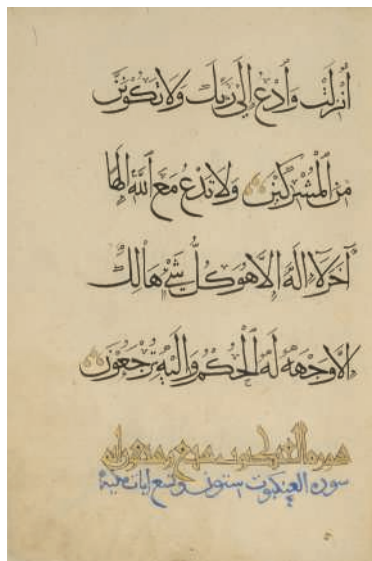 أُنْزِلَتْ وَٱدْعُ إِلَىٰ رَبِّكَ وَلَا تَكُونَنَّ
مِنَ ٱلْمُشْرِكِينَ وَلَا تَدْعُ مَعَ ٱللَّهِ إِلَهًا
آخَرَ لَا إِلَهَ إِلَّا هُوَ كُلُّ شَيْءٍ هَالِكٌ
إِلَّا وَجْهَهُ لَهُ ٱلْحُكْمُ وَإِلَيْهِ تُرْجَعُونَ
سورة العنكبوت
سورة العنكبوت ستون وتسع ايات مكية